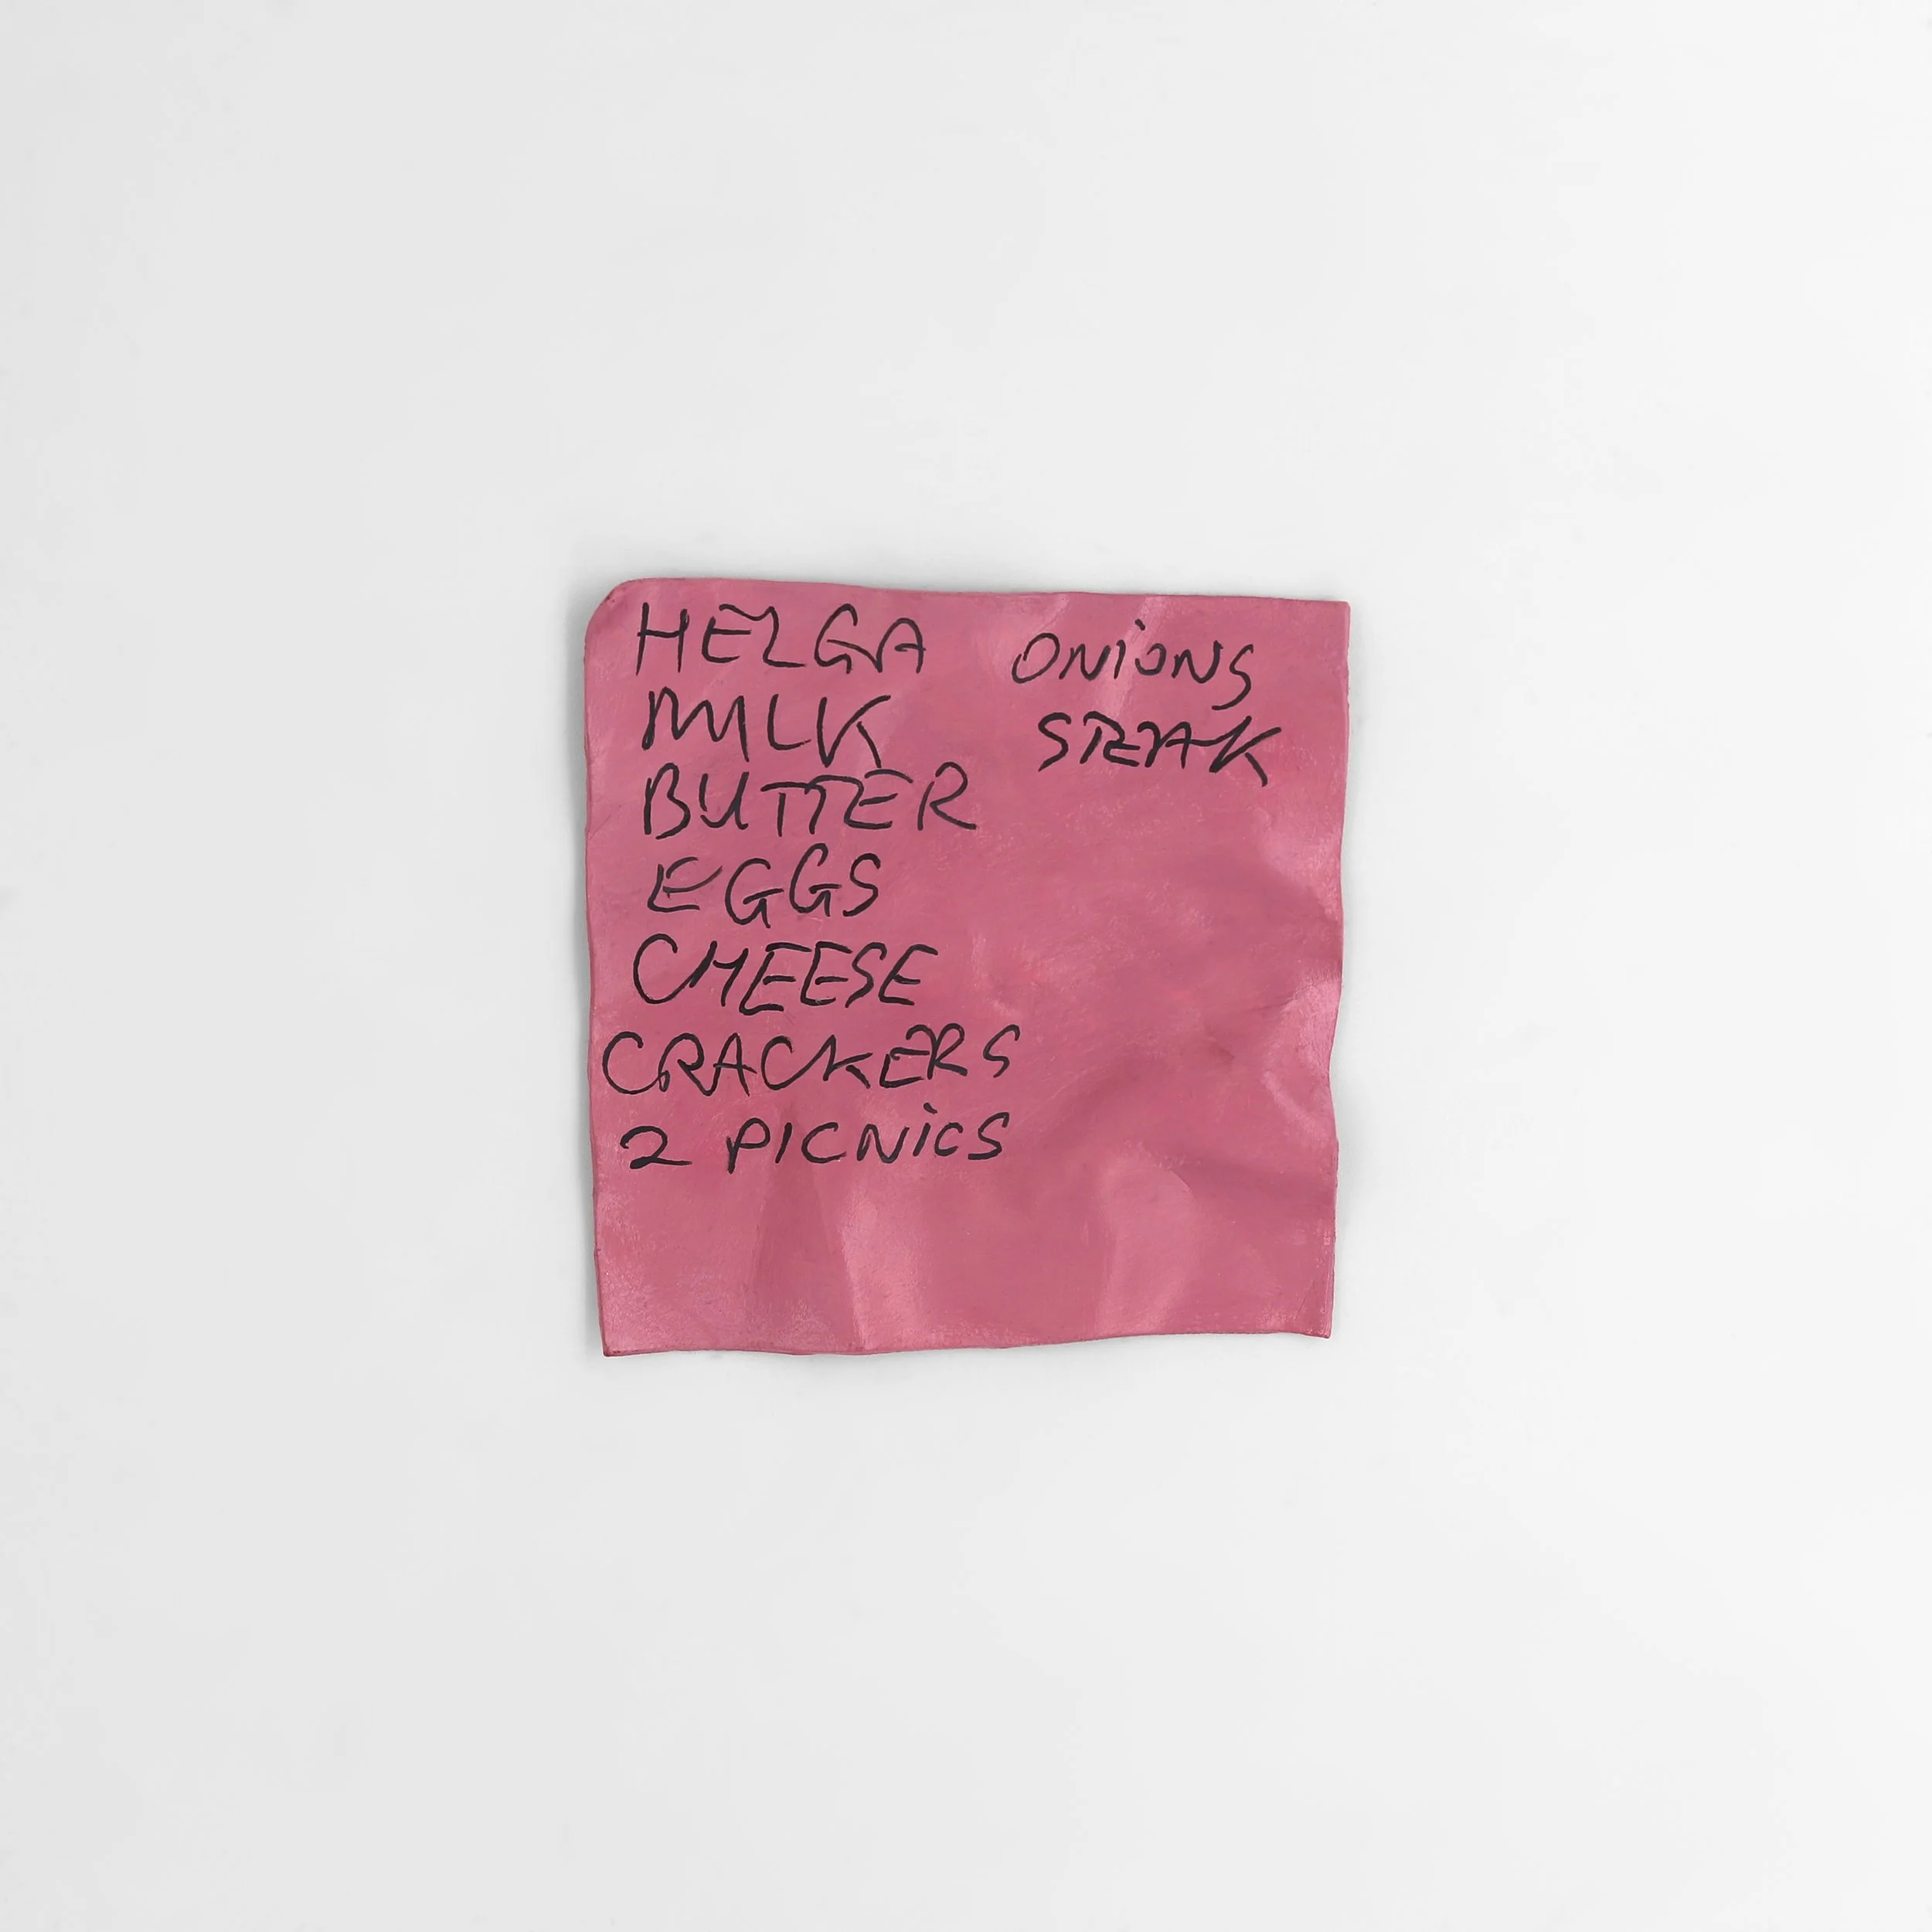 HELGA
MILK
BUTTER
EGGS
CHEESE
CRACKERS
2 PICNiCS
ONiONS
STEAK